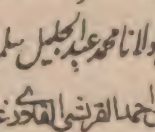 مولانا محمد عبد الجليل سلمہ
احمد القرشی القادری